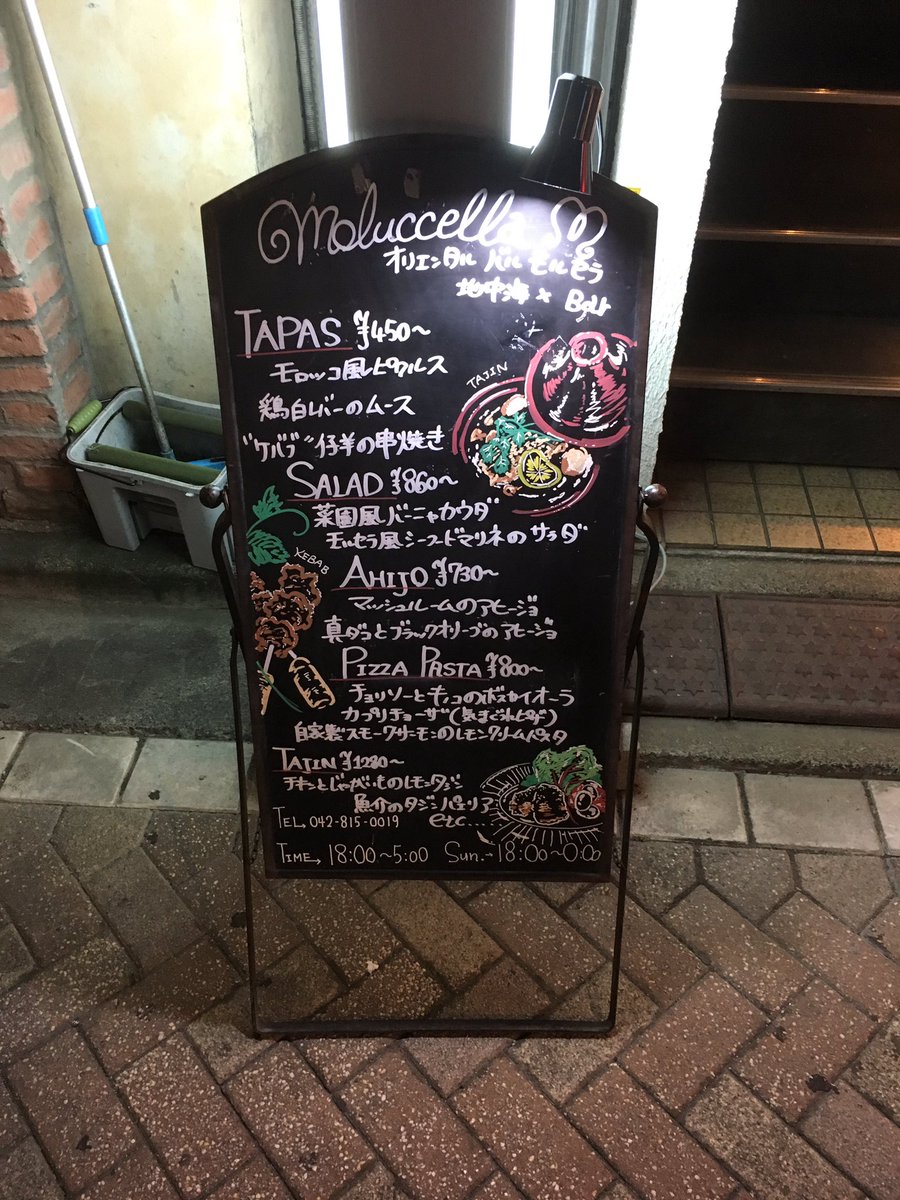 Moluccella
オリエンタル バル モルセラ
地中海 × Bar
TAPAS ¥450〜
モロッコ風ピクルス
TAJIN
鶏白レバーのムース
"ケバブ" 仔羊の串焼き
SALAD ¥860〜
菜園風バーニャカウダ
モルセラ風シーフードマリネのサラダ
KEBAB
AHIJO ¥730〜
マッシュルームのアヒージョ
真ダコとブラックオリーブのアヒージョ
PIZZA PASTA ¥800〜
チョリソーとキノコのボスカイオーラ
カプリチョーザ(気まぐれピザ)
自家製スモークサーモンのレモンクリームパスタ
TAJIN ¥1280〜
チキンとじゃがいものレモンタジン
魚介のタジン パエリア
TEL→ 042-815-0019 etc...
TIME→ 18:00〜5:00 Sun.→18:00〜0:00